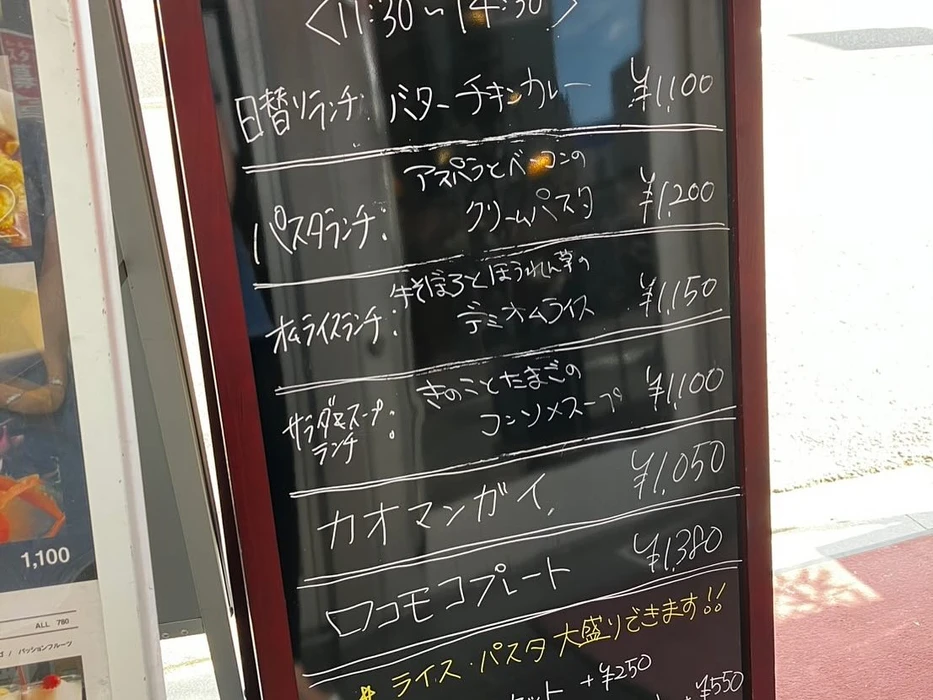 <11:30~14:30>
日替りランチ: バターチキンカレー ¥1,100
アスパラとベーコンの
パスタランチ: クリームパスタ ¥1,200
牛そぼろとほうれん草の
オムライスランチ: デミオムライス ¥1,150
きのことたまごの
サラダ&スープ
ランチ: コンソメスープ ¥1,100
カオマンガイ ¥1,050
ロコモコプレート ¥1,380
* ライス・パスタ 大盛りできます!!
ット +¥250
+¥550
1,100
ALL 780
/ パッションフルーツ